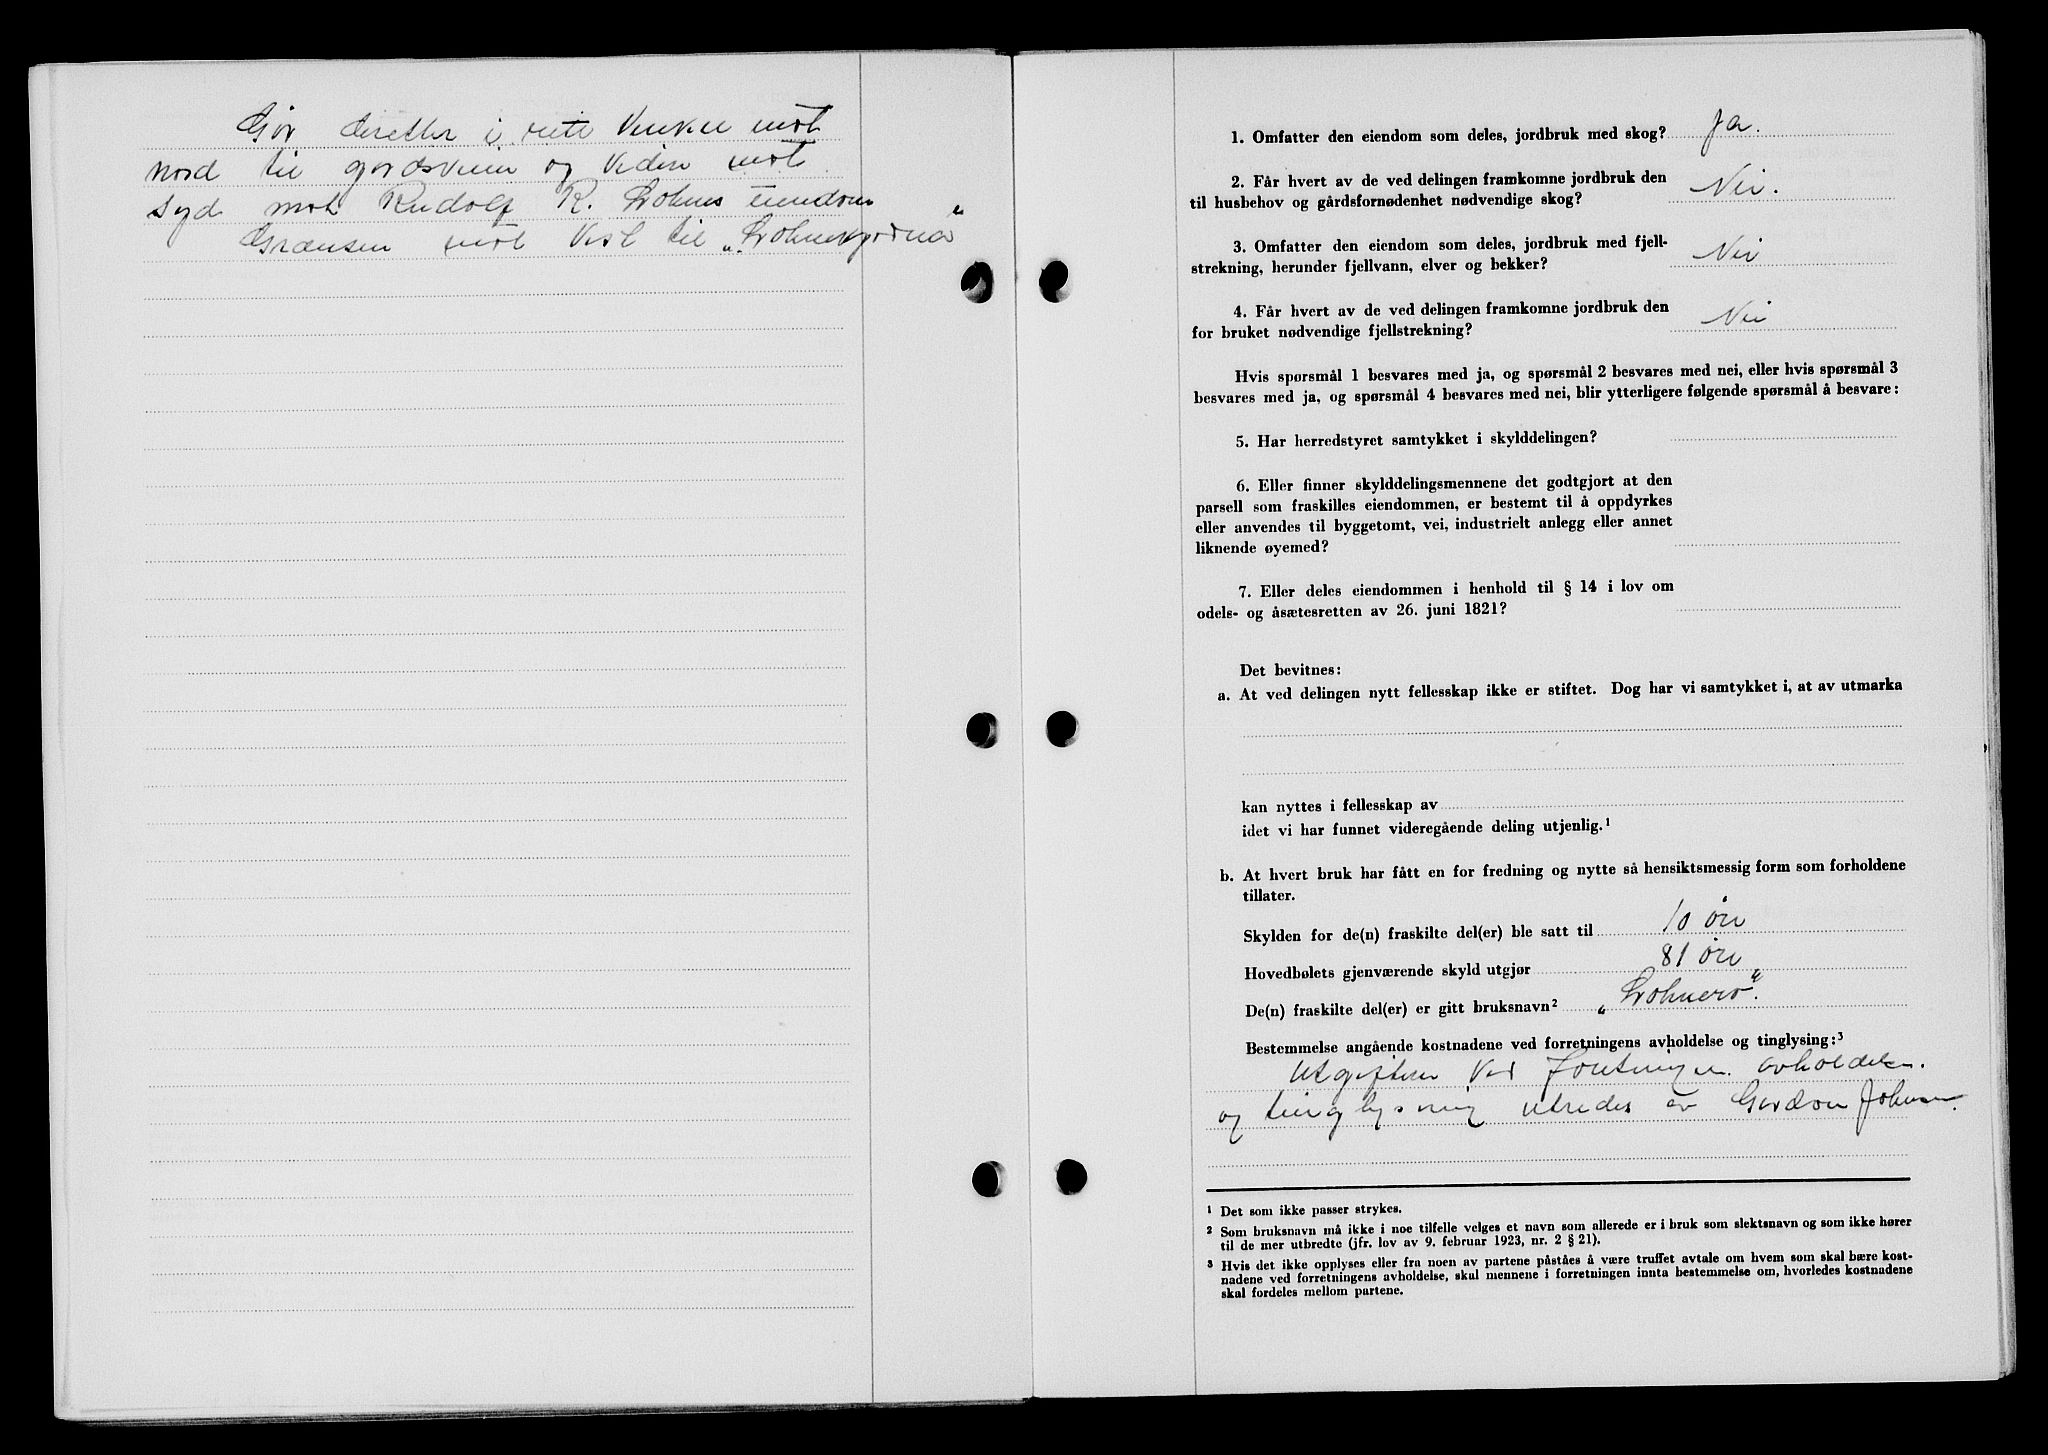 Går deretter i rett Vinkel mot
nord til gårdsveien og videre mot
syd mot Rudolf R. Lohnes eiendom
Grænsen mot Vest til „Lohnekgårna“
1. Omfatter den eiendom som deles, jordbruk med skog? Ja.
2. Får hvert av de ved delingen framkomne jordbruk den
til husbehov og gårdsfornødenhet nødvendige skog? Nei.
3. Omfatter den eiendom som deles, jordbruk med fjell-
strekning, herunder fjellvann, elver og bekker? Nei
4. Får hvert av de ved delingen framkomne jordbruk den
for bruket nødvendige fjellstrekning? Nei
Hvis spørsmål 1 besvares med ja, og spørsmål 2 besvares med nei, eller hvis spørsmål 3
besvares med ja, og spørsmål 4 besvares med nei, blir ytterligere følgende spørsmål å besvare:
5. Har herredstyret samtykket i skylddelingen?
6. Eller finner skylddelingsmennene det godtgjort at den
parsell som fraskilles eiendommen, er bestemt til å oppdyrkes
eller anvendes til byggetomt, vei, industrielt anlegg eller annet
liknende øyemed?
7. Eller deles eiendommen i henhold til § 14 i lov om
odels- og åsætesretten av 26. juni 1821?
Det bevitnes:
a. At ved delingen nytt fellesskap ikke er stiftet. Dog har vi samtykket i, at av utmarka
kan nyttes i fellesskap av
idet vi har funnet videregående deling utjenlig.¹
b. At hvert bruk har fått en for fredning og nytte så hensiktsmessig form som forholdene
tillater.
Skylden for de(n) fraskilte del(er) ble satt til 10 øre
Hovedbølets gjenværende skyld utgjør 81 øre
De(n) fraskilte del(er) er gitt bruksnavn² „Lohnero“.
Bestemmelse angående kostnadene ved forretningens avholdelse og tinglysing:³
Utgiftene ved forretningen avholdelse.
og tinglysning utredes av Gordon Johnsen.
¹ Det som ikke passer strykes.
² Som bruksnavn må ikke i noe tilfelle velges et navn som allerede er i bruk som slektsnavn og som ikke hører
til de mer utbredte (jfr. lov av 9. februar 1923, nr. 2 § 21).
³ Hvis det ikke opplyses eller fra noen av partene påståes å være truffet avtale om hvem som skal bære kost-
nadene ved forretningens avholdelse, skal mennene i forretningen innta bestemmelse om, hvorledes kostnadene
skal fordeles mellom partene.